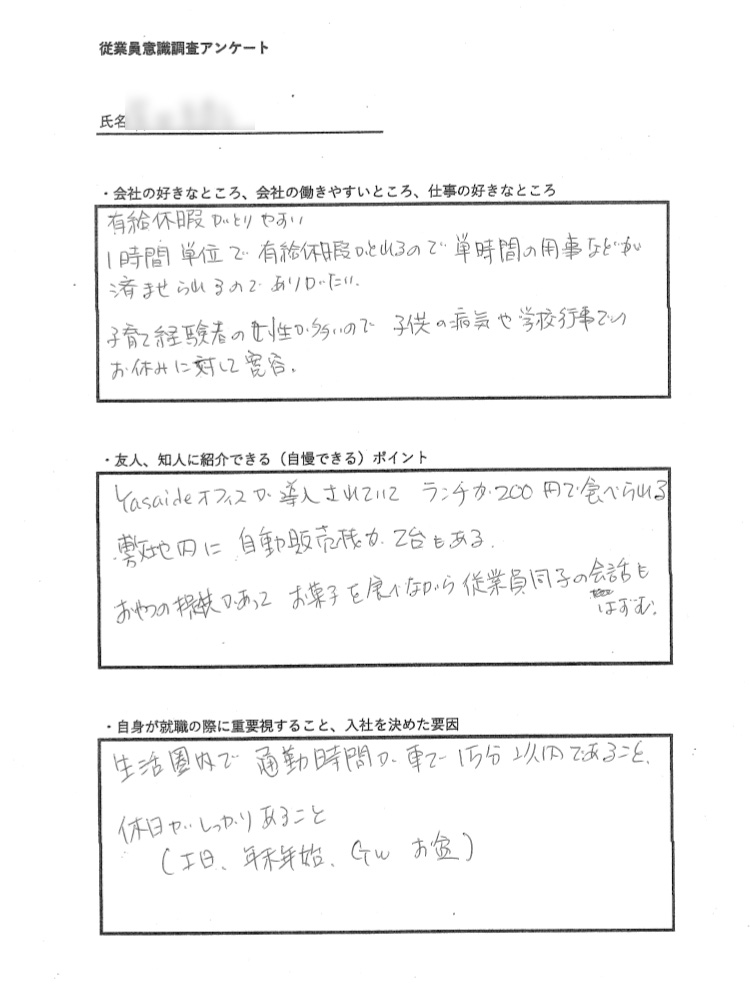 従業員意識調査アンケート
氏名
・会社の好きなところ、会社の働きやすいところ、仕事の好きなところ
有給休暇がとりやすい
1時間単位で有給休暇がとれるので単時間の用事などが
済ませられるのでありがたい.
子育て経験者の女性が多いので 子供の病気や学校行事での
お休みに対して寛容.
・友人、知人に紹介できる（自慢できる）ポイント
Yasaideオフィスが導入されていて ランチが200円で食べられる
敷地内に 自動販売機が 2台もある.
おやつの提供があって お菓子を食べながら従業員同子の会話も
はずむ.
・自身が就職の際に重要視すること、入社を決めた要因
生活圏内で 通勤時間が 車で15分以内であること.
休日がしっかりあること
(土日、年末年始、GW お盆)